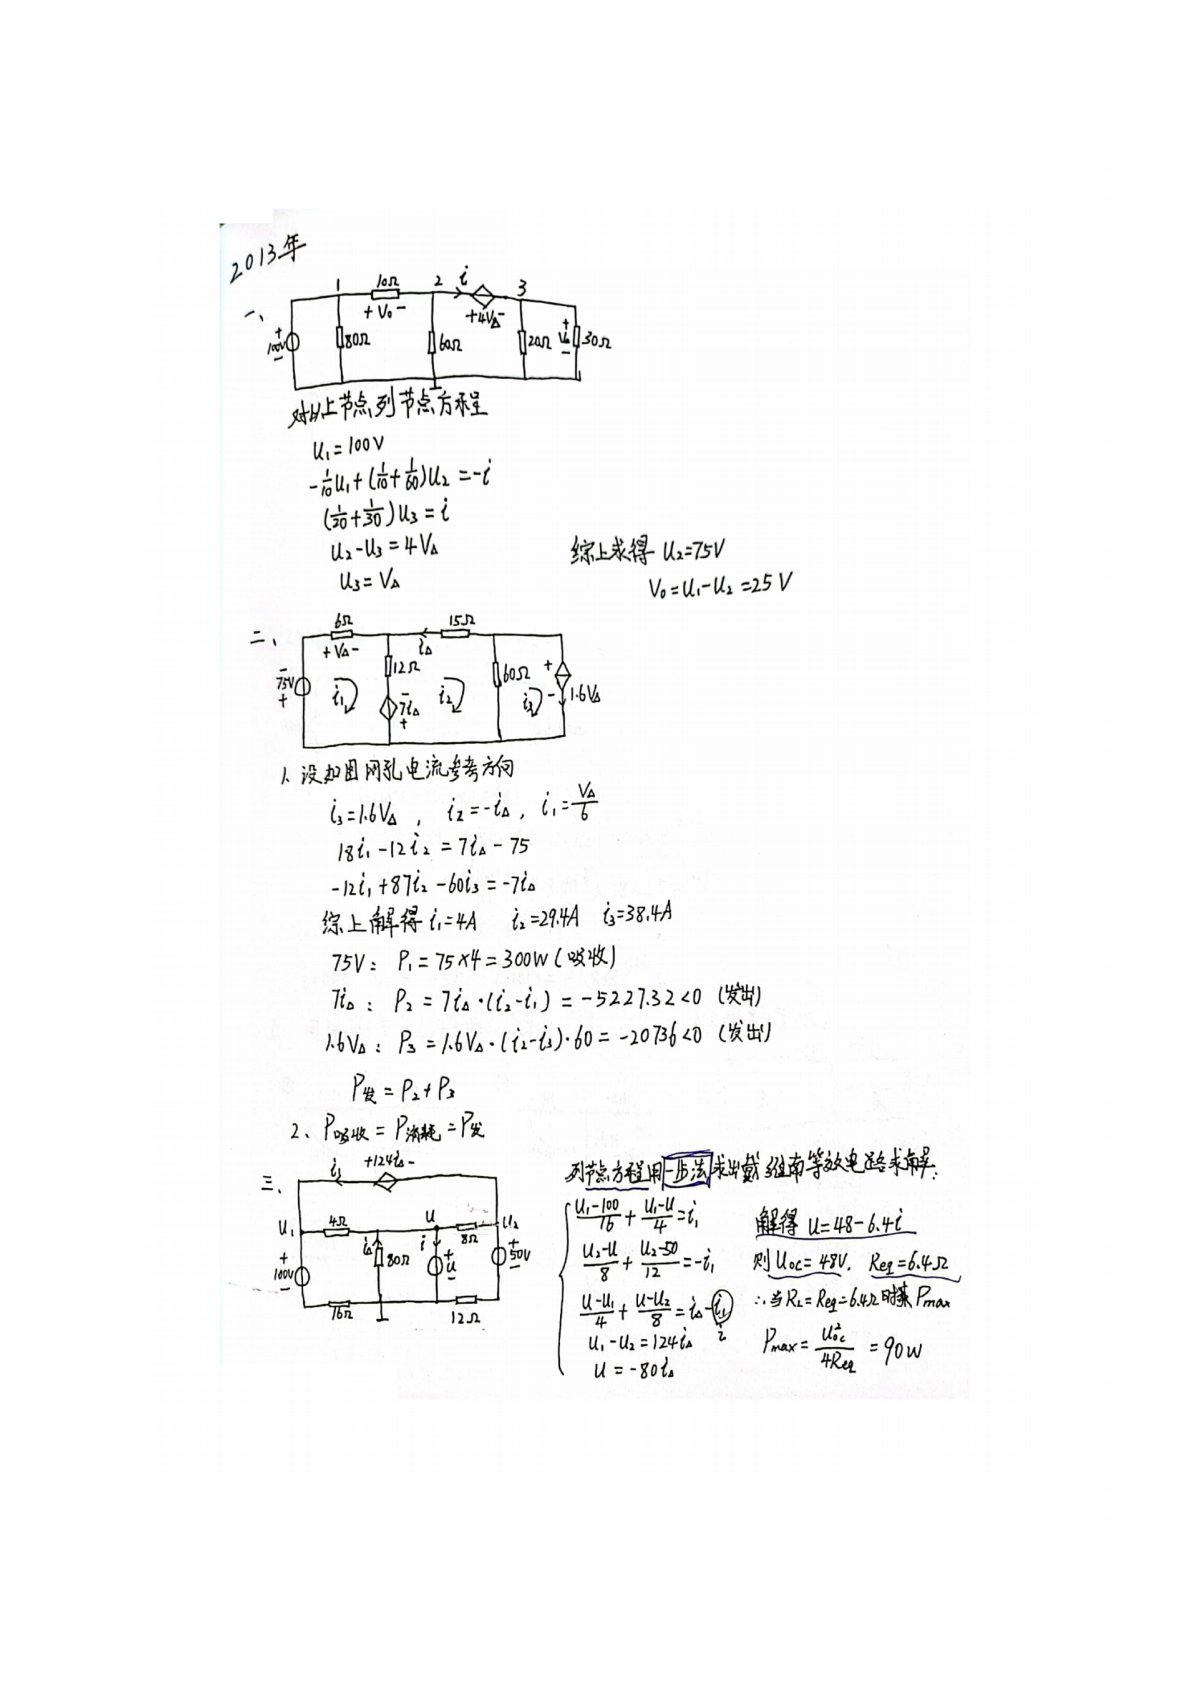 2013年
一、
1 10Ω 2 i 3
+ V₀ - +4V△-
+ 100V - 80Ω 60Ω 20Ω + V△ - 30Ω
对以上节点列节点方程
U₁=100V
-1/10U₁+(1/10+1/60)U₂=-i
(1/20+1/30)U₃=i
U₂-U₃=4V△
综上求得 U₂=75V
U₃=V△
V₀=U₁-U₂=25V
二、
6Ω 15Ω
+ V△ - i△
- 75V + 12Ω 60Ω + - 1.6V△
i₁ - 7i△ + i₂ i₃
1、设如图网孔电流参考方向
i₃=1.6V△ , i₂=-i△ , i₁=V△/6
18i₁-12i₂=7i△-75
-12i₁+87i₂-60i₃=-7i△
综上解得 i₁=4A i₂=29.4A i₃=38.4A
75V: P₁=75×4=300W(吸收)
7i△: P₂=7i△·(i₂-i₁)=-5227.32<0 (发出)
1.6V△: P₃=1.6V△·(i₂-i₃)·60=-20736<0 (发出)
P发=P₂+P₃
2、P吸收=P消耗=P发
三、
i₁ +124i△-
U₁ 4Ω U 8Ω U₂
+ 100V - i△ 80Ω i + u - + 50V -
16Ω 12Ω
列节点方程用一步法求出戴维南等效电路求解:
(U₁-100)/16+(U₁-U)/4=i₁
(U₂-U)/8+(U₂-50)/12=-i₁
(U-U₁)/4+(U-U₂)/8=i△-i₁
i
U₁-U₂=124i△
U=-80i△
解得 U=48-6.4i
则Uoc=48V, Req=6.4Ω
∴当RL=Req=6.4Ω时 Pmax
Pmax=Uoc²/4Req=90W